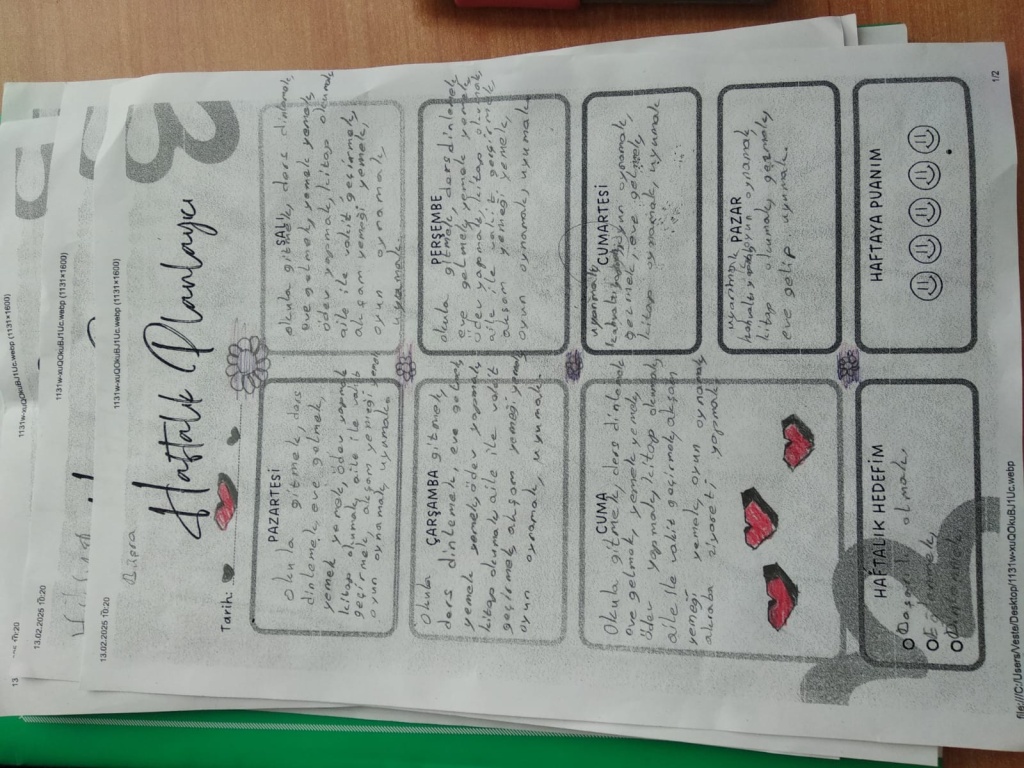 13.02.2025 10:20
1131w-xuQOkuBJ1Uc.webp (1131×1600)
Haftalık Planlayıcı
Tarih:
PAZARTESİ
Okula gitmek, ders
dinlemek, eve gelmek,
yemek yemek, ödev yapmak
kitap okumak, aile ile vakit
geçirmek, akşam yemeği yemek
oyun oynamak, uyumak.
SALI
okula gitmek, ders dinlemek,
eve gelmek, yemek yemek
ödev yapmak, kitap okumak
aile ile vakit geçirmek,
akşam yemeği yemek,
oyun oynamak
uyumak.
ÇARŞAMBA
Okula gitmek,
ders dinlemek, eve gelmek
yemek yemek, ödev yapmak,
kitap okumak, aile ile vakit
geçirmek, akşam yemeği, yemek
oyun oynamak, uyumak.
PERŞEMBE
okula gitmek, ders dinlemek
eve gelmek, yemek yemek,
ödev yapmak, kitap okumak,
aile ile vakit geçirmek
akşam yemeği yemek,
oyun oynamak, uyumak.
CUMA
Okula gitmek, ders dinlemek
eve gelmek, yemek yemek,
ödev yapmak, kitap okumak,
aile ile vakit geçirmek, akşam
yemeği yemek, oyun oynamak
akraba ziyareti, yapmak
CUMARTESİ
uyanmak
oyun oynamak,
gezmek, eve gelmek,
kitap oynamak, uyumak
PAZAR
uyanmak
oyun oynamak
kitap okumak, gezmek,
eve gelip uyumak.
HAFTALIK HEDEFİM
Başarılı olmak.
Eğlenmek
Dinlenmek
HAFTAYA PUANIM
file:///C:/Users/Veste/Desktop/1131w-xuQOkuBJ1Uc.webp
1/2
13.02.2025 10:20
1131w-xuQOkuBJ1Uc.webp (1131×1600)
1131w-xuQOkuBJ1Uc.webp (1131×1600)